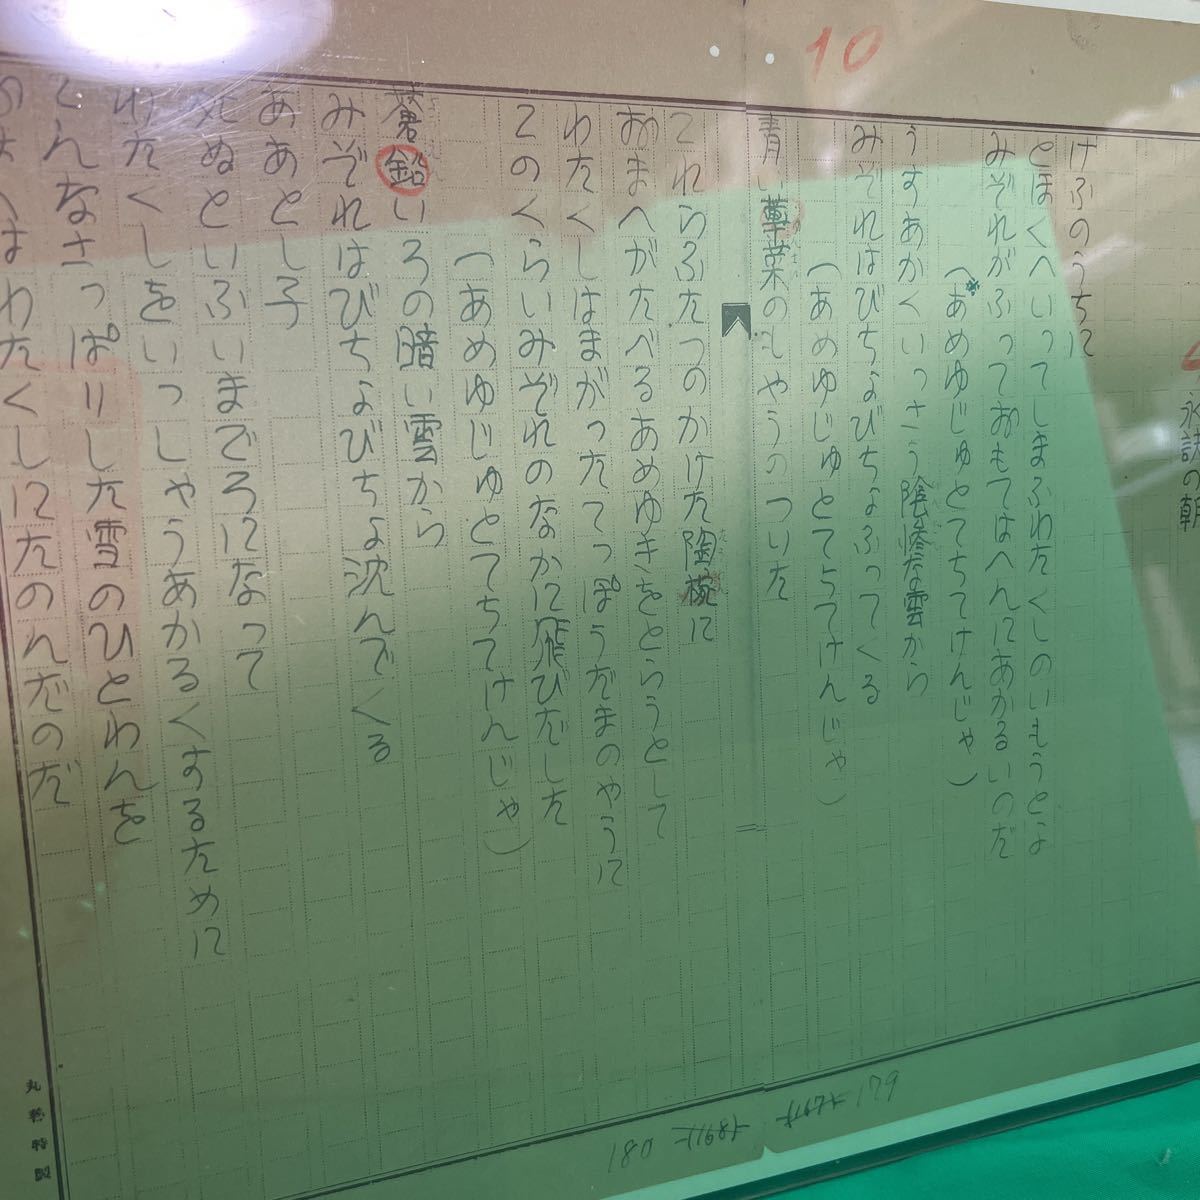 10
永訣の朝
けふのうちに
とほくへいってしまふわたくしのいもうとよ
みぞれがふっておもてはへんにあかるいのだ
(あめゆじゅとてちてけんじゃ)
うすあかくいっさう陰惨な雲から
みぞれはびちょびちょふってくる
(あめゆじゅとてちてけんじゃ)
青い蓴菜のもやうのついた
これらふたつのかけた陶椀に
おまへがたべるあめゆきをとらうとして
わたくしはまがったてっぽうだまのやうに
このくらいみぞれのなかに飛びだした
(あめゆじゅとてちてけんじゃ)
蒼鉛いろの暗い雲から
みぞれはびちょびちょ沈んでくる
ああとし子
死ぬといふいまごろになって
わたくしをいっしゃうあかるくするために
こんなさっぱりした雪のひとわんを
わたくしにたのんだのだ
179
180
丸善特製